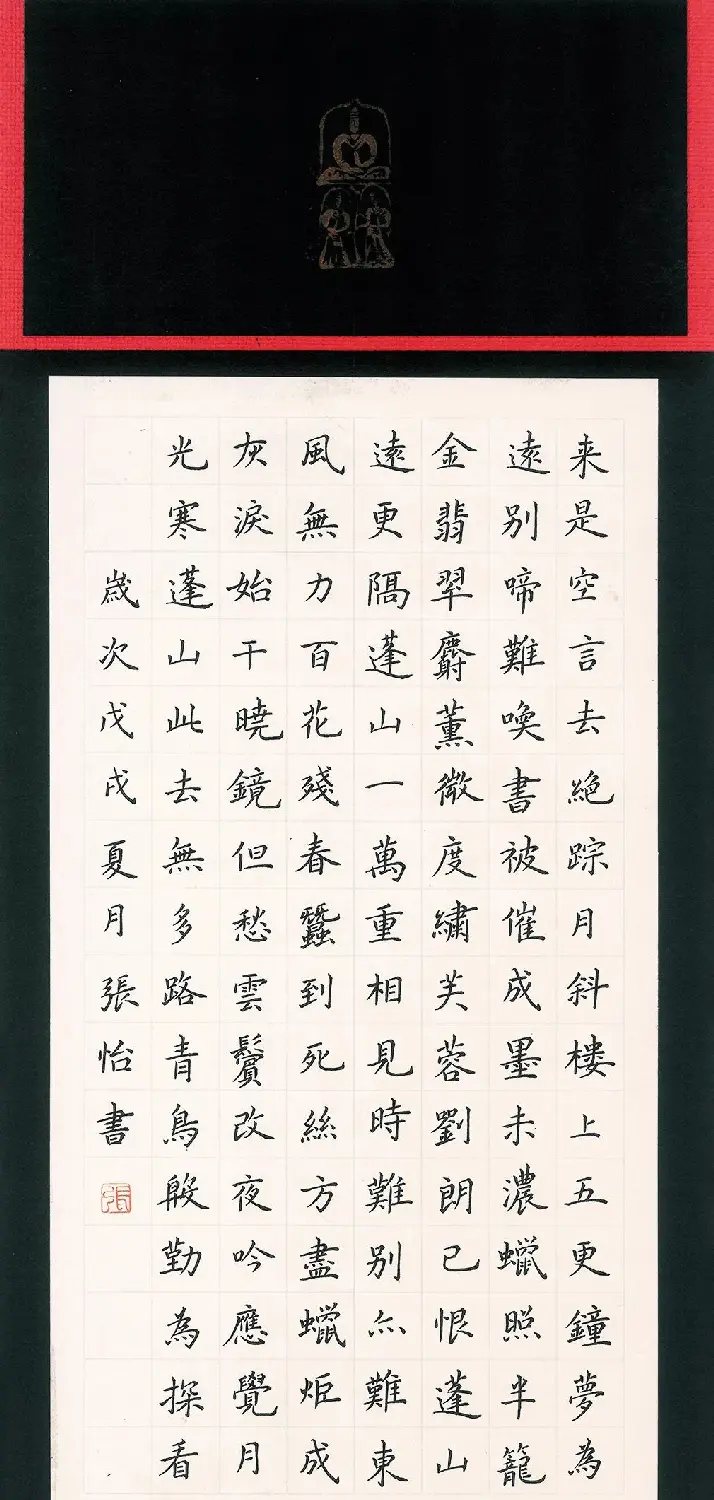 来是空言去絕踪月斜楼上五更鐘夢為
遠别啼難喚書被催成墨未濃蠟照半籠
金翡翠麝薰微度繡芙蓉劉朗已恨蓬山
遠更隔蓬山一萬重相見時難别亦難東
風無力百花殘春蠶到死絲方盡蠟炬成
灰淚始干曉鏡但愁雲鬢改夜吟應覺月
光寒蓬山此去無多路青鳥殷勤為探看
歲次戊戌夏月張怡書
張